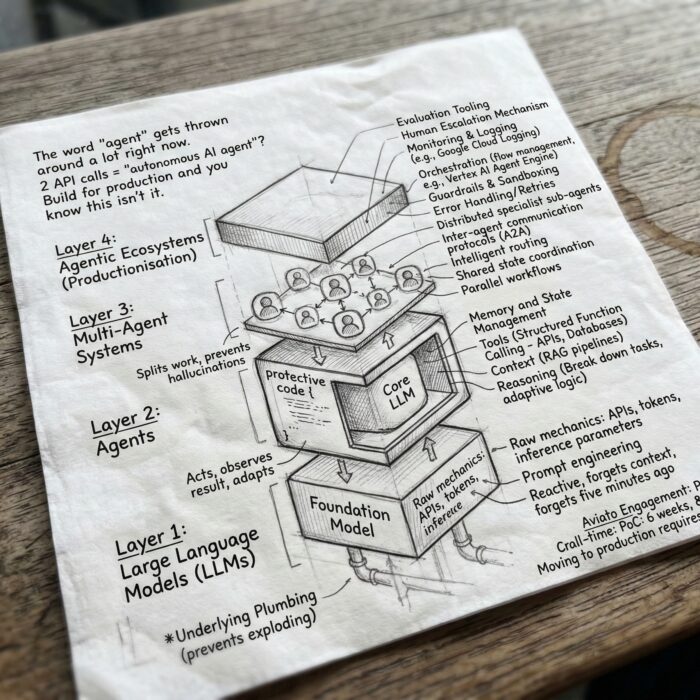 The word "agent" gets thrown
around a lot right now.
2 API calls = "autonomous AI agent"?
Build for production and you
know this isn't it.
Layer 4:
Agentic Ecosystems
(Productionisation)
Layer 3:
Multi-Agent
Systems
Splits work, prevents
hallucinations
Layer 2:
Agents
Acts, observes
result, adapts
Layer 1:
Large Language
Models (LLMs)
*Underlying Plumbing
(prevents exploding)
protective
code {
Core
LLM
Foundation
Model
Raw mechanics:
APIs, tokens,
inference
Evaluation Tooling
Human Escalation Mechanism
Monitoring & Logging
(e.g., Google Cloud Logging)
Orchestration (flow management,
e.g., Vertex AI Agent Engine)
Guardrails & Sandboxing
Error Handling/Retries
Distributed specialist sub-agents
Inter-agent communication
protocols (A2A)
Intelligent routing
Shared state coordination
Parallel workflows
Memory and State
Management
Tools (Structured Function
Calling - APIs, Databases)
Context (RAG pipelines)
Reasoning (Break down tasks,
adaptive logic)
Raw mechanics: APIs, tokens,
inference parameters
Prompt engineering
Reactive, forgets context,
forgets five minutes ago
Aviato Engagement: P
Crall-time: PoC: 6 weeks,
Moving to production requires